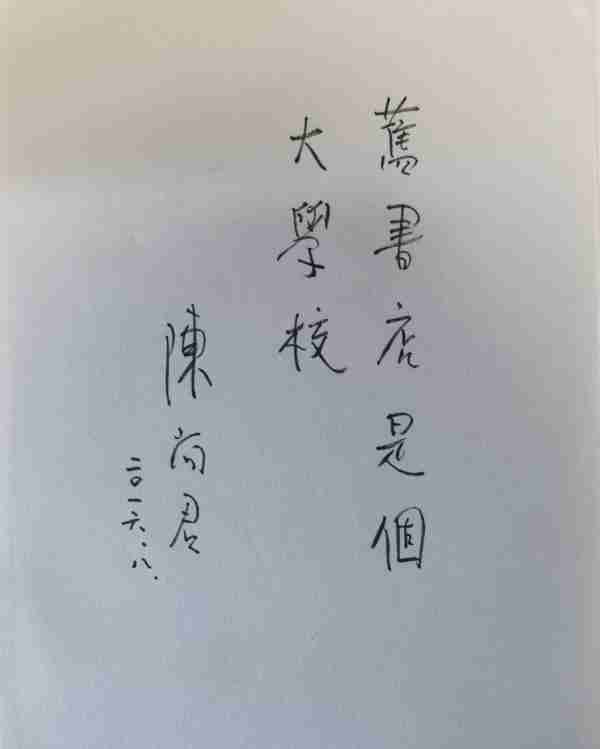 舊書店是個
大學校
陳尚君
二〇一六.八.